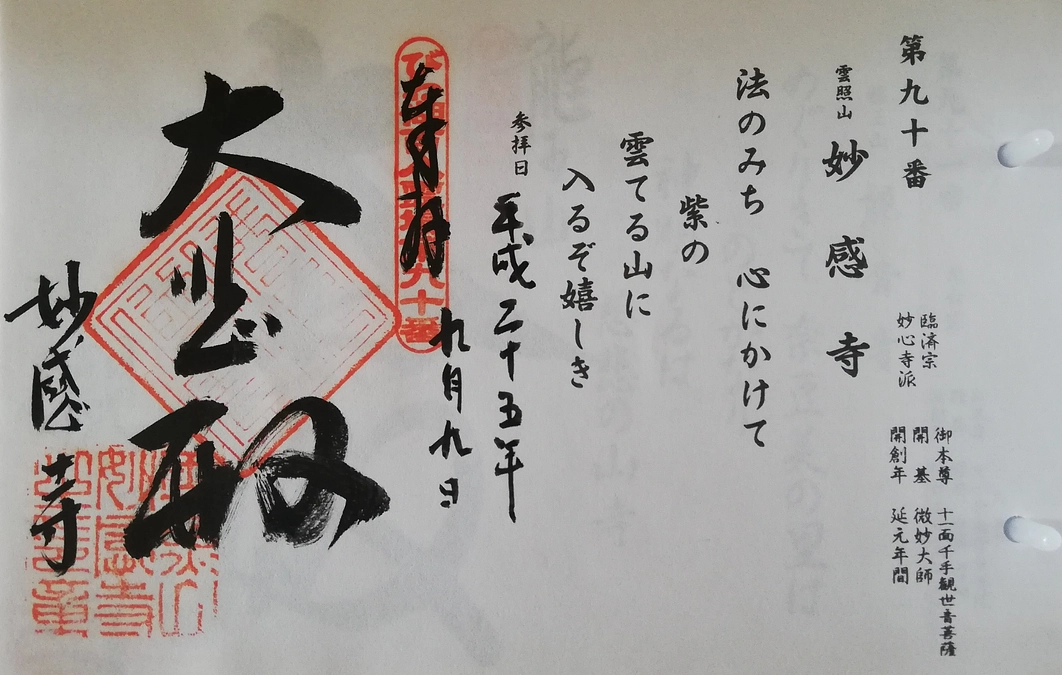 第九十番
雲照山 妙感寺
臨済宗
妙心寺派
御本尊 十一面千手観世音菩薩
開基 微妙大師
開創年 延元年間
法のみち 心にかけて
紫の
雲てる山に
入るぞ嬉しき
参拝日 平成二十五年
九月九日
奉拝
九十番
大悲殿
妙感寺